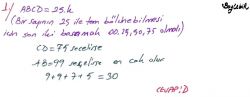 Beşlebik
1) ABCD = 25.k
(Bir sayının 25 ile tam bölünebilmesi
için son iki basamak 00, 25, 50, 75 olmalı)
CD = 75 seçelim
AB = 99 seçelim en çok olur
9+9+7+5 = 30
CEVAP: D